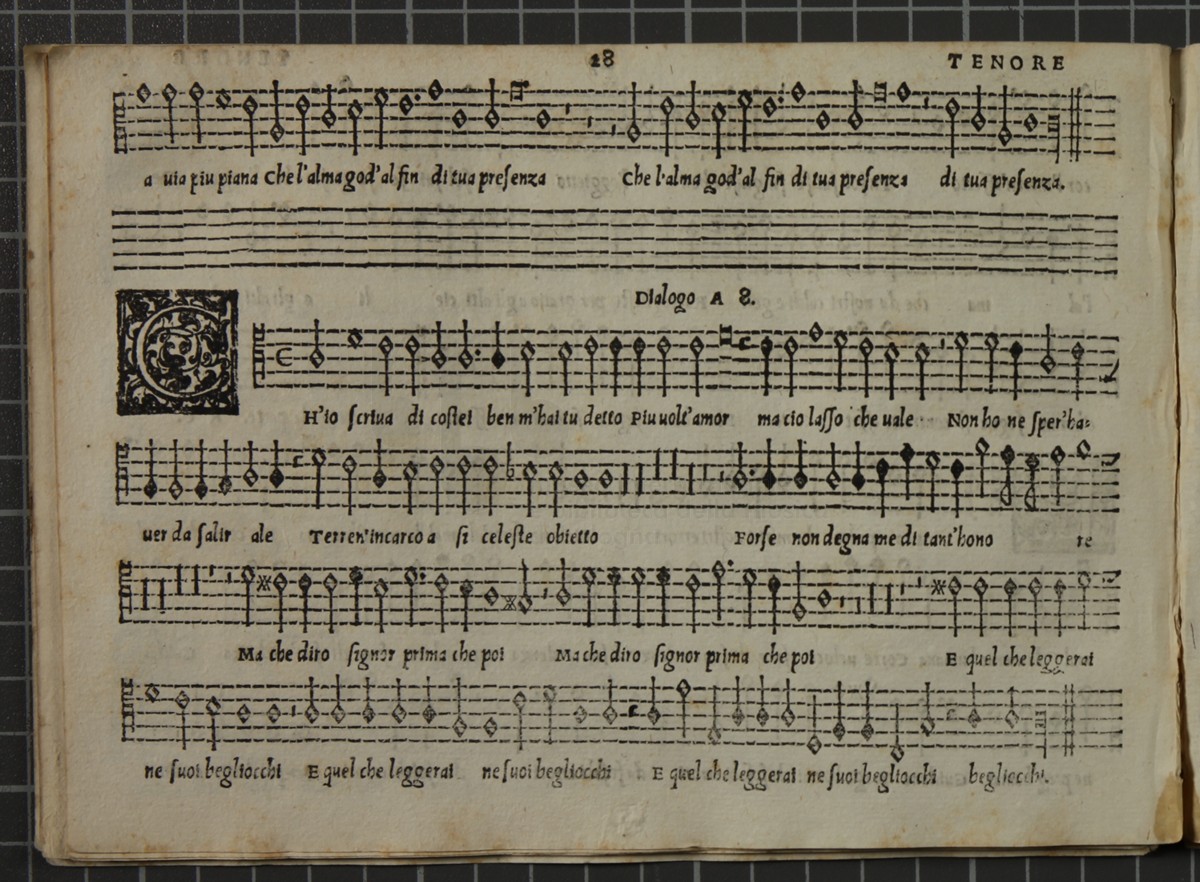 28
TENORE
a uia piu piana Che l'alma god'al fin di tua presenza Che l'alma god'al fin di tua presenza di tua presenza.
Dialogo A 8.
CH'io scriua di costei ben m'hai tu detto Piu uolt'amor ma cio lasso che uale Non ho ne sper'ha=
uer da salir ale Terren'incarco a si celeste obietto Forse non degna me di tant'hono re
Ma che diro signor prima che poi Ma che diro signor prima che poi E quel che leggerai
ne suoi begliocchi E quel che leggerai ne suoi begliocchi E quel che leggerai ne suoi begliocchi begliocchi.